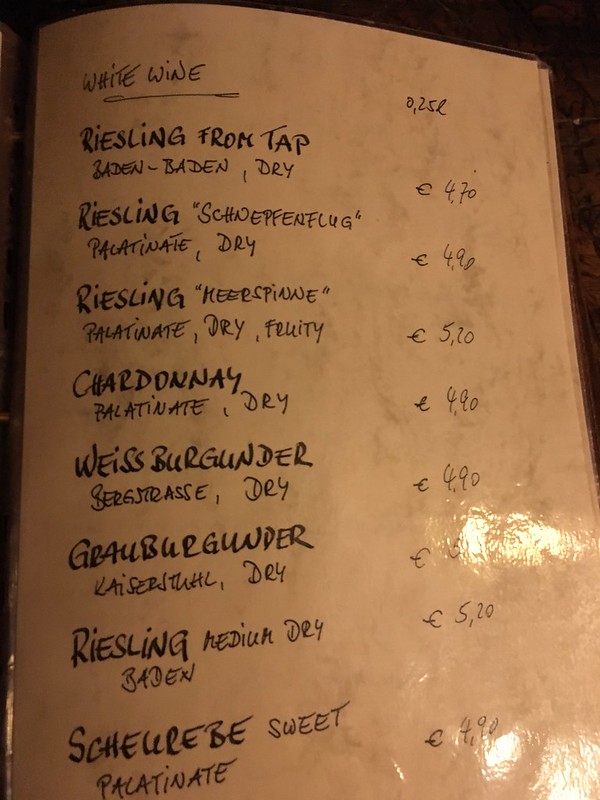 WHITE WINE
0,25l
RIESLING FROM TAP
BADEN-BADEN, DRY
€ 4,70
RIESLING "SCHNEPFENFLUG"
PALATINATE, DRY
€ 4,90
RIESLING "MEERSPINNE"
PALATINATE, DRY, FRUITY
€ 5,20
CHARDONNAY
PALATINATE, DRY
€ 4,90
WEISSBURGUNDER
BERGSTRASSE, DRY
€ 4,90
GRAUBURGUNDER
KAISERSTUHL, DRY
€
RIESLING MEDIUM DRY
BADEN
€ 5,20
SCHEUREBE SWEET
PALATINATE
€ 4,90